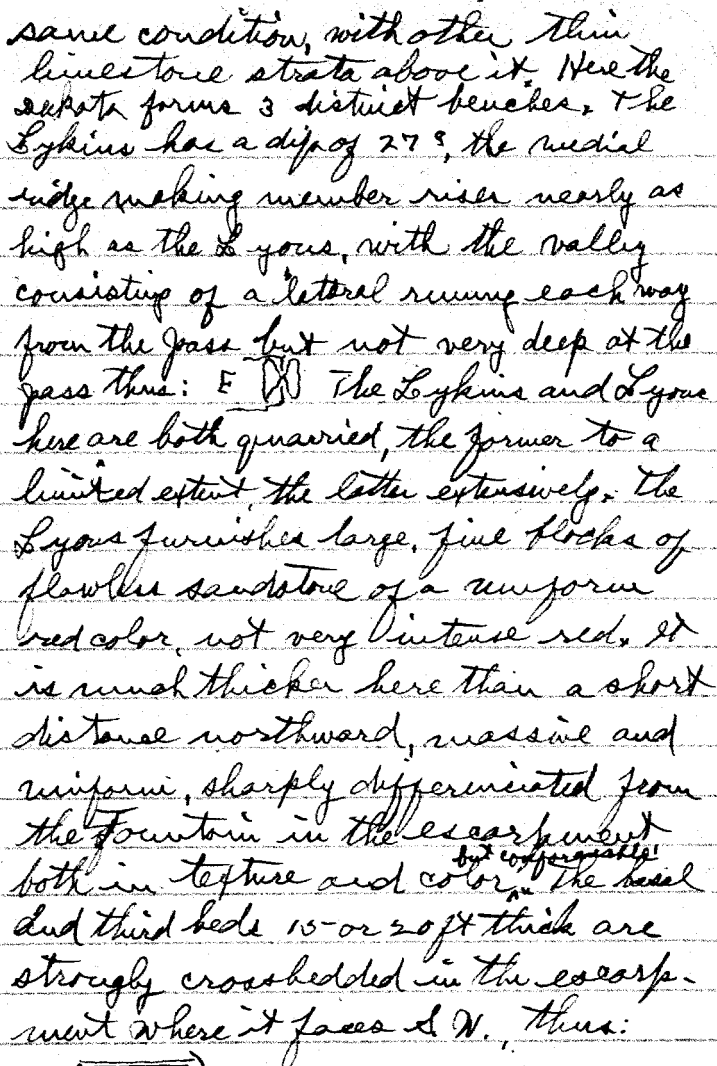 same condition, with other thin
limestone strata above it. Here the
Dakota forms 3 distinct benches. The
Lykins has a dip of 27°, the medial
ridge making member rises nearly as
high as the Lyons, with the valley
consisting of a lateral running each way
from the pass but not very deep at the
pass thus: E The Lykins and Lyons
here are both quarried, the former to a
limited extent, the latter extensively. The
Lyons furnishes large, fine blocks of
flawless sandstone of a uniform
red color, not very intense red. It
is much thicker here than a short
distance northward, massive and
uniform, sharply differenciated from
the Fountain in the escarpment
but conformable!
both in texture and color. The basal
and third beds 15 or 20 ft thick are
strongly crossbedded in the escarp-
ment where it faces S W., thus: